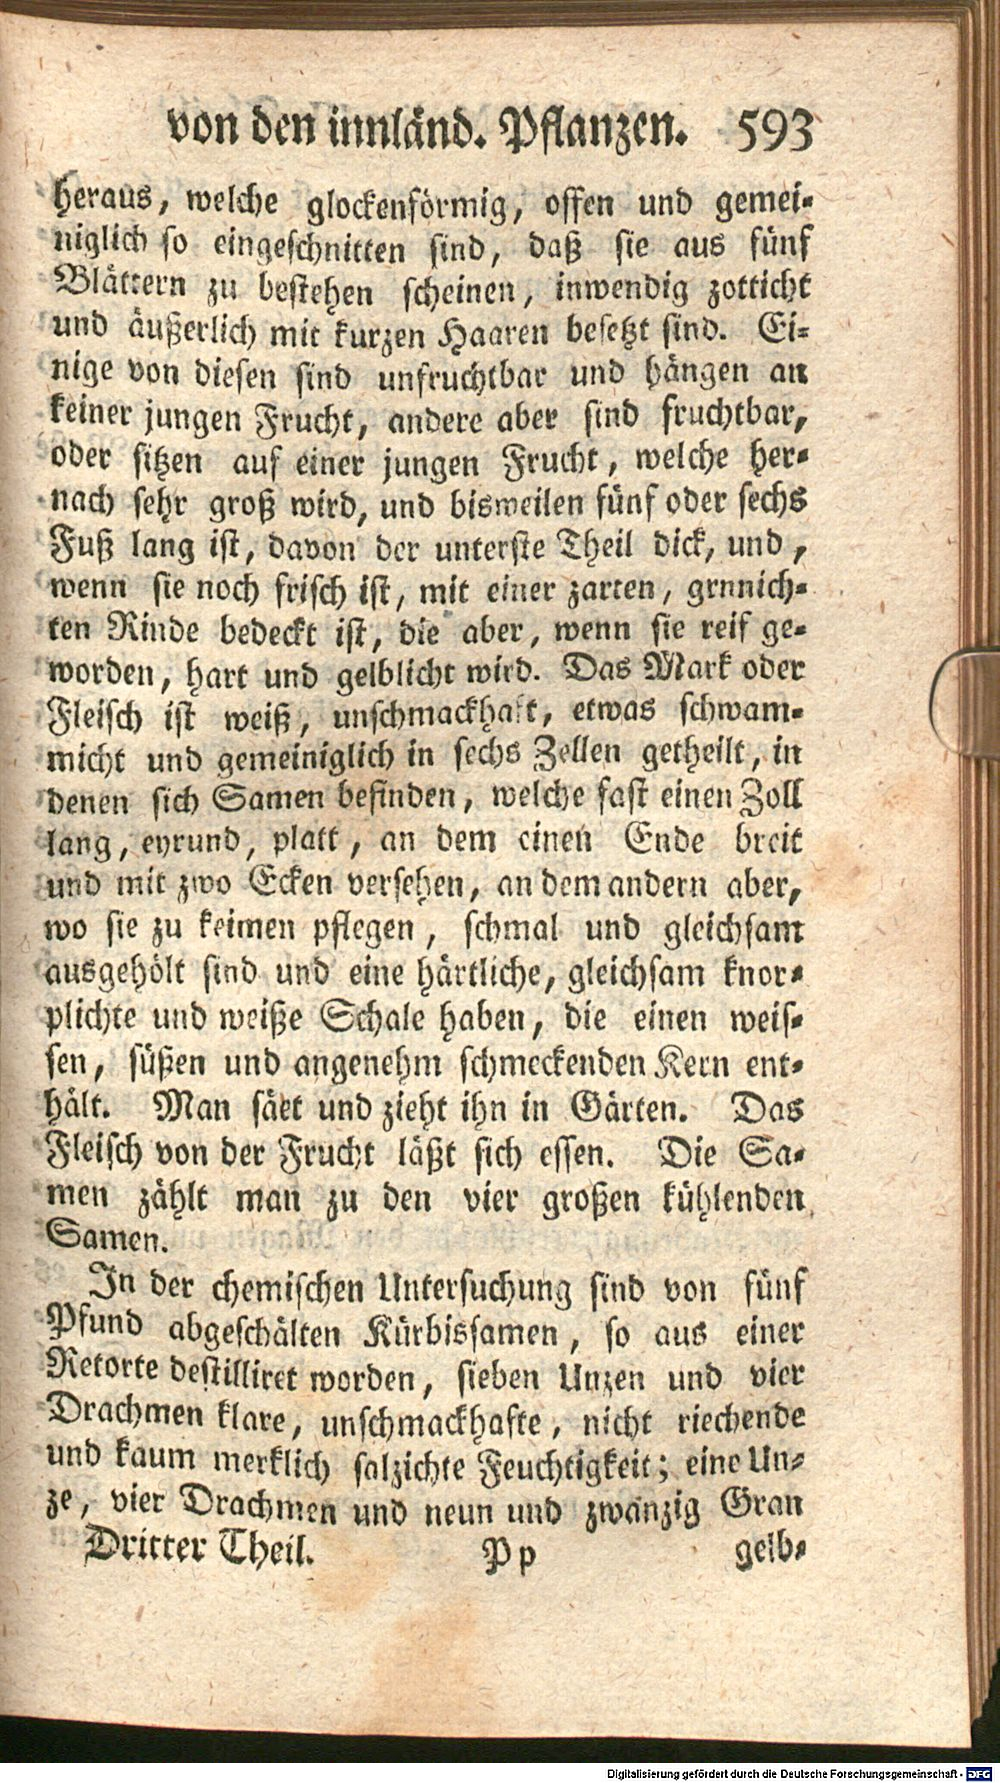 von den innländ. Pflanzen. 593
heraus, welche glockenförmig, offen und gemei-
niglich so eingeschnitten sind, daß sie aus fünf
Blättern zu bestehen scheinen, inwendig zotticht
und äußerlich mit kurzen Haaren besetzt sind. Ei-
nige von diesen sind unfruchtbar und hängen an
keiner jungen Frucht, andere aber sind fruchtbar,
oder sitzen auf einer jungen Frucht, welche her-
nach sehr groß wird, und bisweilen fünf oder sechs
Fuß lang ist, davon der unterste Theil dick, und,
wenn sie noch frisch ist, mit einer zarten, grnnich-
ten Rinde bedeckt ist, die aber, wenn sie reif ge-
worden, hart und gelblicht wird. Das Mark oder
Fleisch ist weiß, unschmackhaft, etwas schwam-
micht und gemeiniglich in sechs Zellen getheilt, in
denen sich Samen befinden, welche fast einen Zoll
lang, eyrund, platt, an dem einen Ende breit
und mit zwo Ecken versehen, an dem andern aber,
wo sie zu keimen pflegen, schmal und gleichsam
ausgehölt sind und eine härtliche, gleichsam knor-
plichte und weiße Schale haben, die einen weis-
sen, süßen und angenehm schmeckenden Kern ent-
hält. Man säet und zieht ihn in Gärten. Das
Fleisch von der Frucht läßt sich essen. Die Sa-
men zählt man zu den vier großen kühlenden
Samen.
In der chemischen Untersuchung sind von fünf
Pfund abgeschälten Kürbissamen, so aus einer
Retorte destilliret worden, sieben Unzen und vier
Drachmen klare, unschmackhafte, nicht riechende
und kaum merklich salzichte Feuchtigkeit; eine Un-
ze, vier Drachmen und neun und zwanzig Gran
Dritter Theil. Pp gelb-
Digitalisierung gefördert durch die Deutsche Forschungsgemeinschaft - DFG